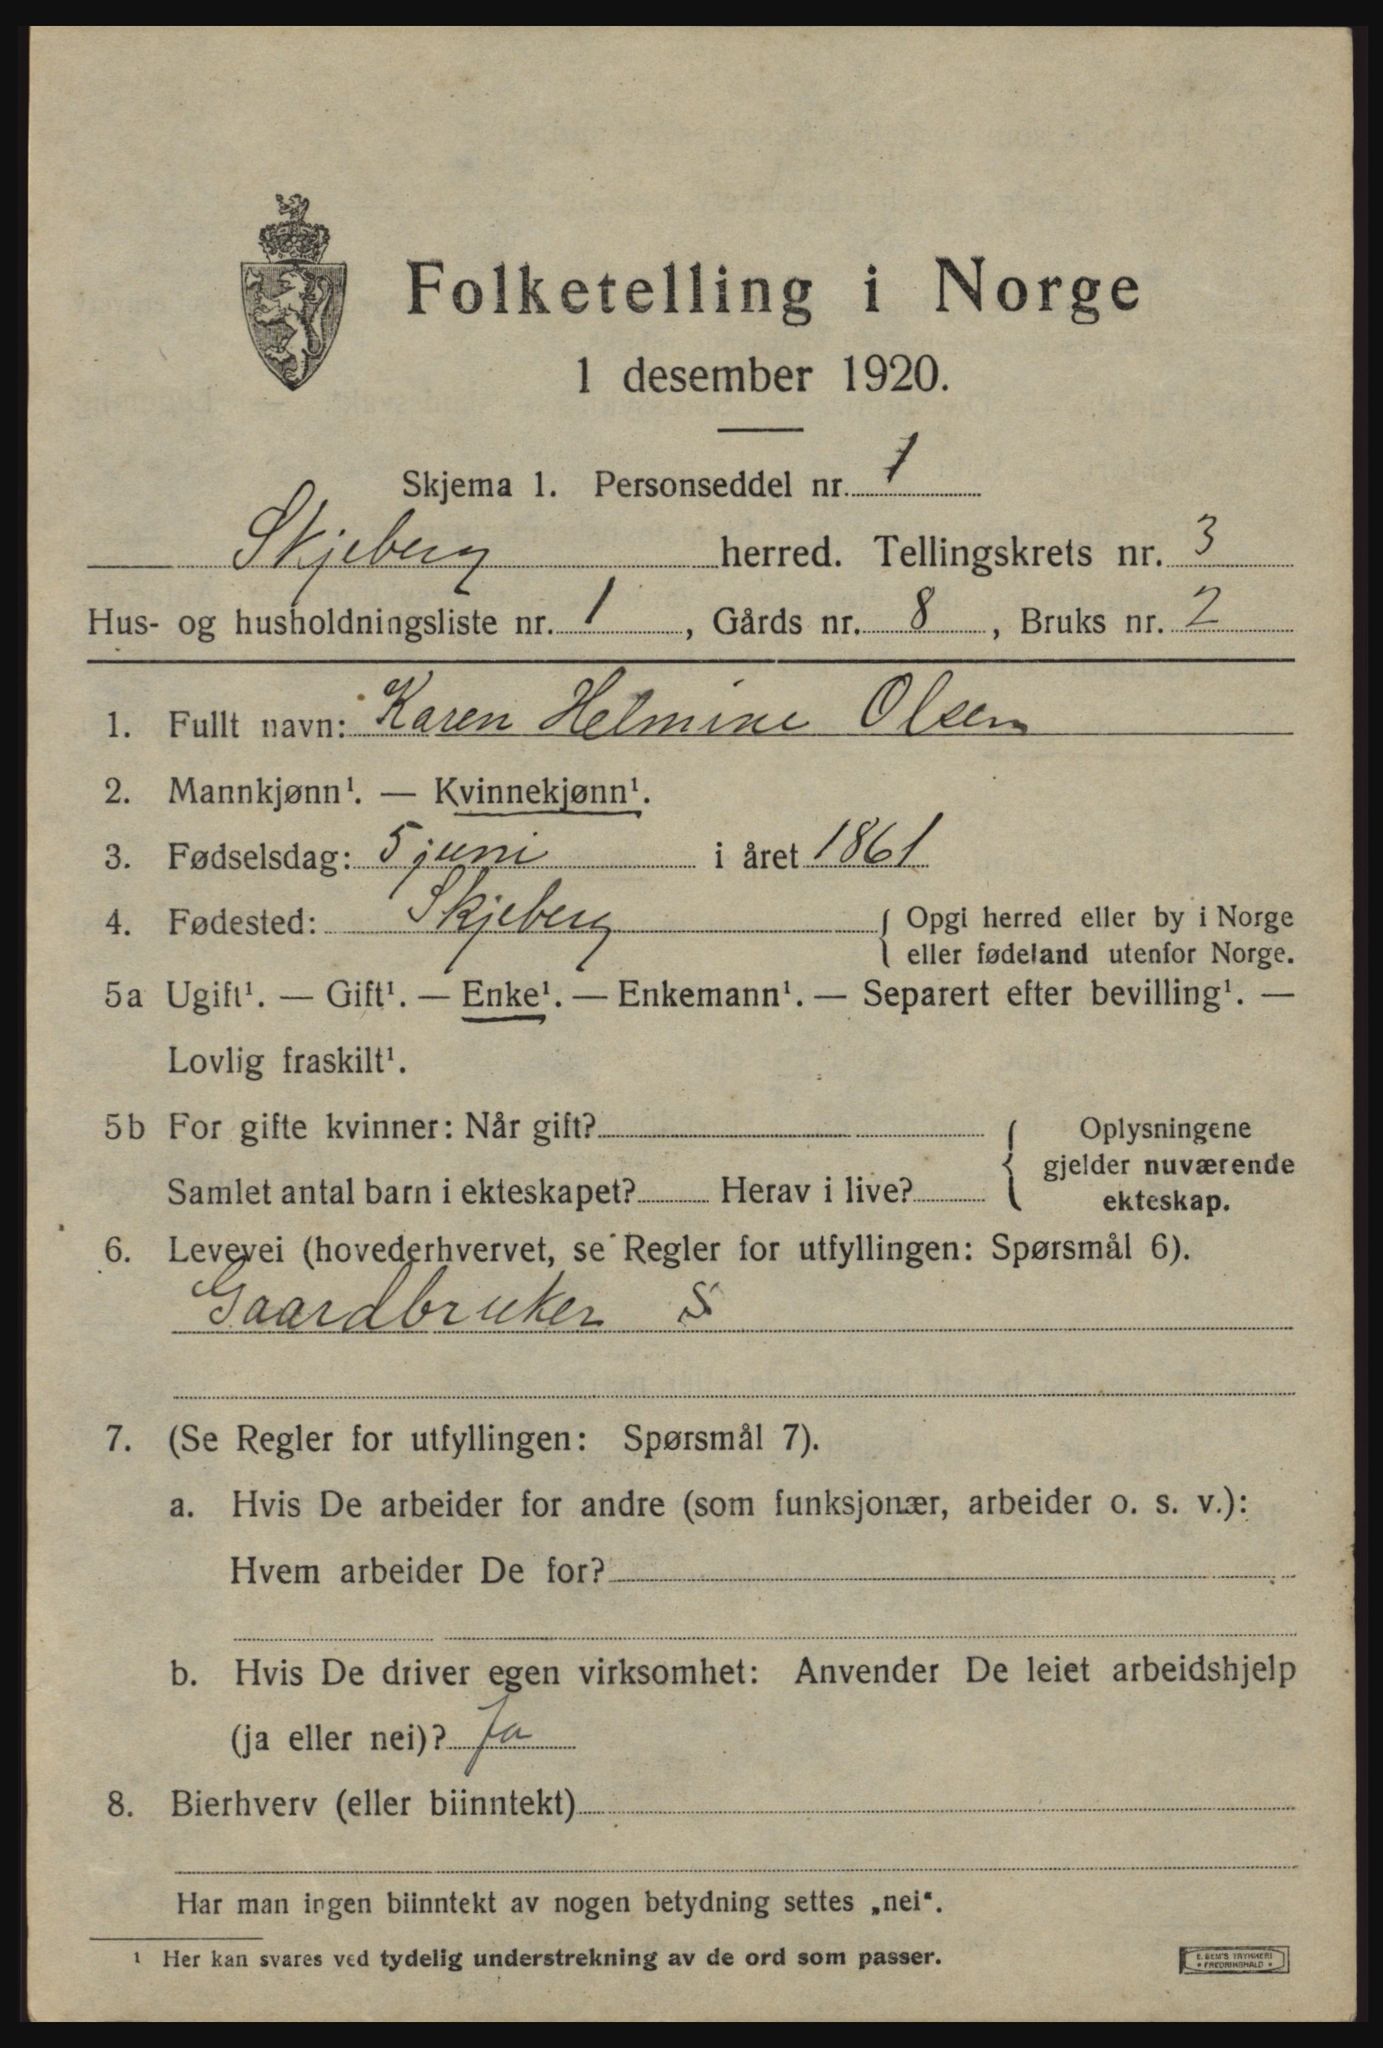 Folketelling i Norge
1 desember 1920.
Skjema 1. Personseddel nr. 1
Skjeberg herred. Tellingskrets nr. 3
Hus- og husholdningsliste nr. 1, Gårds nr. 8, Bruks nr. 2
1. Fullt navn: Karen Helmine Olsen
2. Mannkjønn¹. — Kvinnekjønn¹.
3. Fødselsdag: 5 juni i året 1861
4. Fødested: Skjeberg { Opgi herred eller by i Norge
eller fødeland utenfor Norge.
5a Ugift¹. — Gift¹. — Enke¹. — Enkemann¹. — Separert efter bevilling¹. —
Lovlig fraskilt¹.
5b For gifte kvinner: Når gift? { Oplysningene
gjelder nuværende
Samlet antal barn i ekteskapet? Herav i live? ekteskap.
6. Levevei (hovederhvervet, se Regler for utfyllingen: Spørsmål 6).
Gaardbruker S
7. (Se Regler for utfyllingen: Spørsmål 7).
a. Hvis De arbeider for andre (som funksjonær, arbeider o. s. v.):
Hvem arbeider De for?
b. Hvis De driver egen virksomhet: Anvender De leiet arbeidshjelp
(ja eller nei)? Ja
8. Bierhverv (eller biinntekt)
Har man ingen biinntekt av nogen betydning settes „nei“.
¹ Her kan svares ved tydelig understrekning av de ord som passer.
E. SEM'S TRYKKERI
• FREDRIKSHALD •